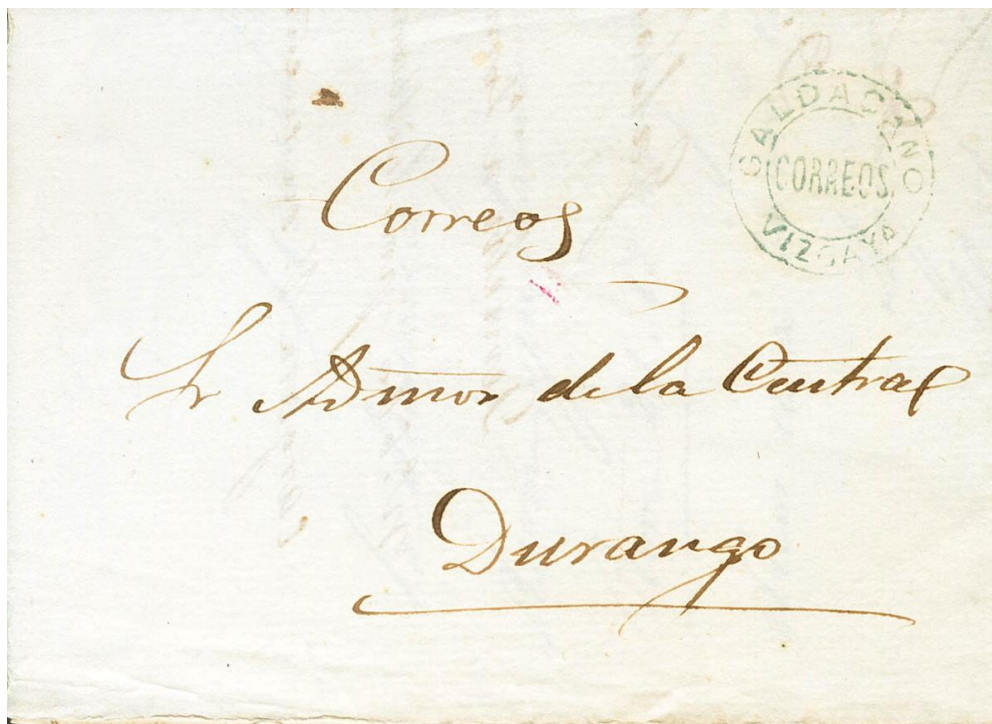 GALDACANO
CORREOS.
VIZCAYA
Correos
Sr Admor de la Central
Durango